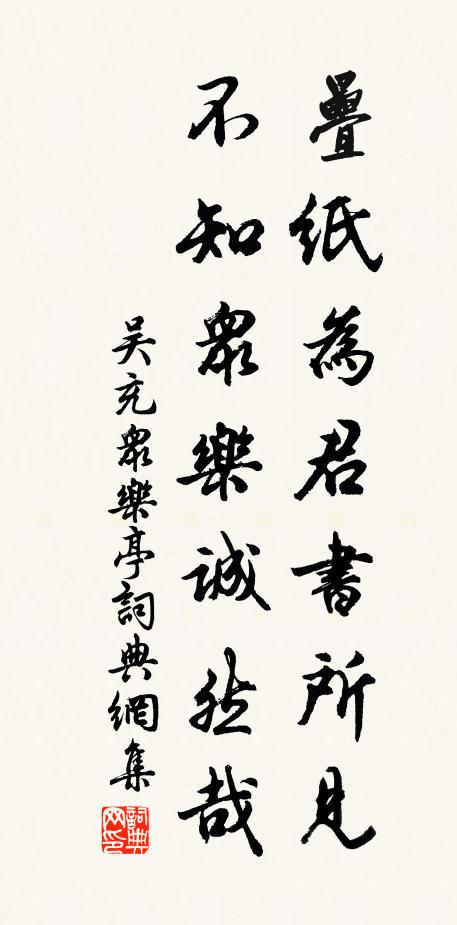 疊紙為君書所見
不知眾樂誠然哉
吴充眾樂亭詞典網集
詞典网印